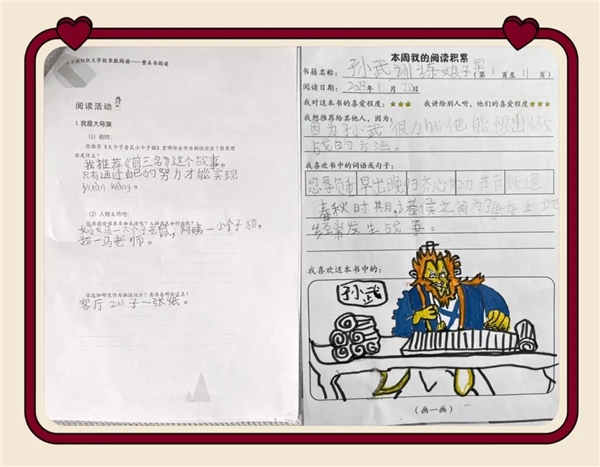 文学故事狠阅读——整本书阅读
阅读活动
1. 我是大导演
(1) 剧情:
我推荐《前三名》这个故事。
只有通过自己的努力才能实现
yuàn wàng。
(2) 人物&场地:
妈妈一大个子老鼠,阿姨一小个子猫,
我一马老师。
客厅 2个 子一张纸。
本周我的阅读积累
书籍名称: 孙武训练娘子军 (第 1 页至 11 页)
阅读日期: 月 日
我对这本书的喜爱程度: ★★★ 我讲给别人听,他们的喜爱程度★★★
我想推荐给其他人,因为:
因为孙武很力 他能想出做
战的方法。
我喜欢书中的词语或句子:
忍辱负 早出晚归 齐心协力 节节败退
春秋时期,诸侯之间为了争夺土地
经常发生战争。
我喜欢这本书中的:
孙武
(画一画)